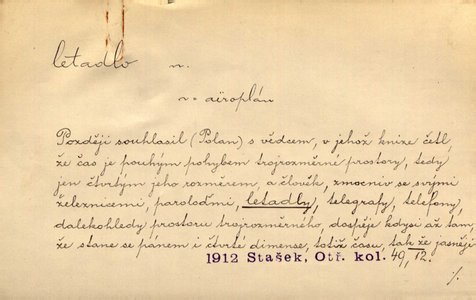 letadlo n.
v = aëroplán
Později souhlasil (Polan) s vědcem, v jehož knize četl,
že čas je pouhým pohybem trojrozměrné prostory, tedy
jen čtvrtým jeho rozměrem, a člověk, zmocniv se svými
železnicemi, paroloďmi, letadly, telegrafy, telefony,
dalekohledy prostoru trojrozměrného, dospěje kdysi až tam,
že stane se pánem i čtvrté dimense, totiž času, tak že jasněji
1912 Stašek, Otř. kol. 49, 12.
%